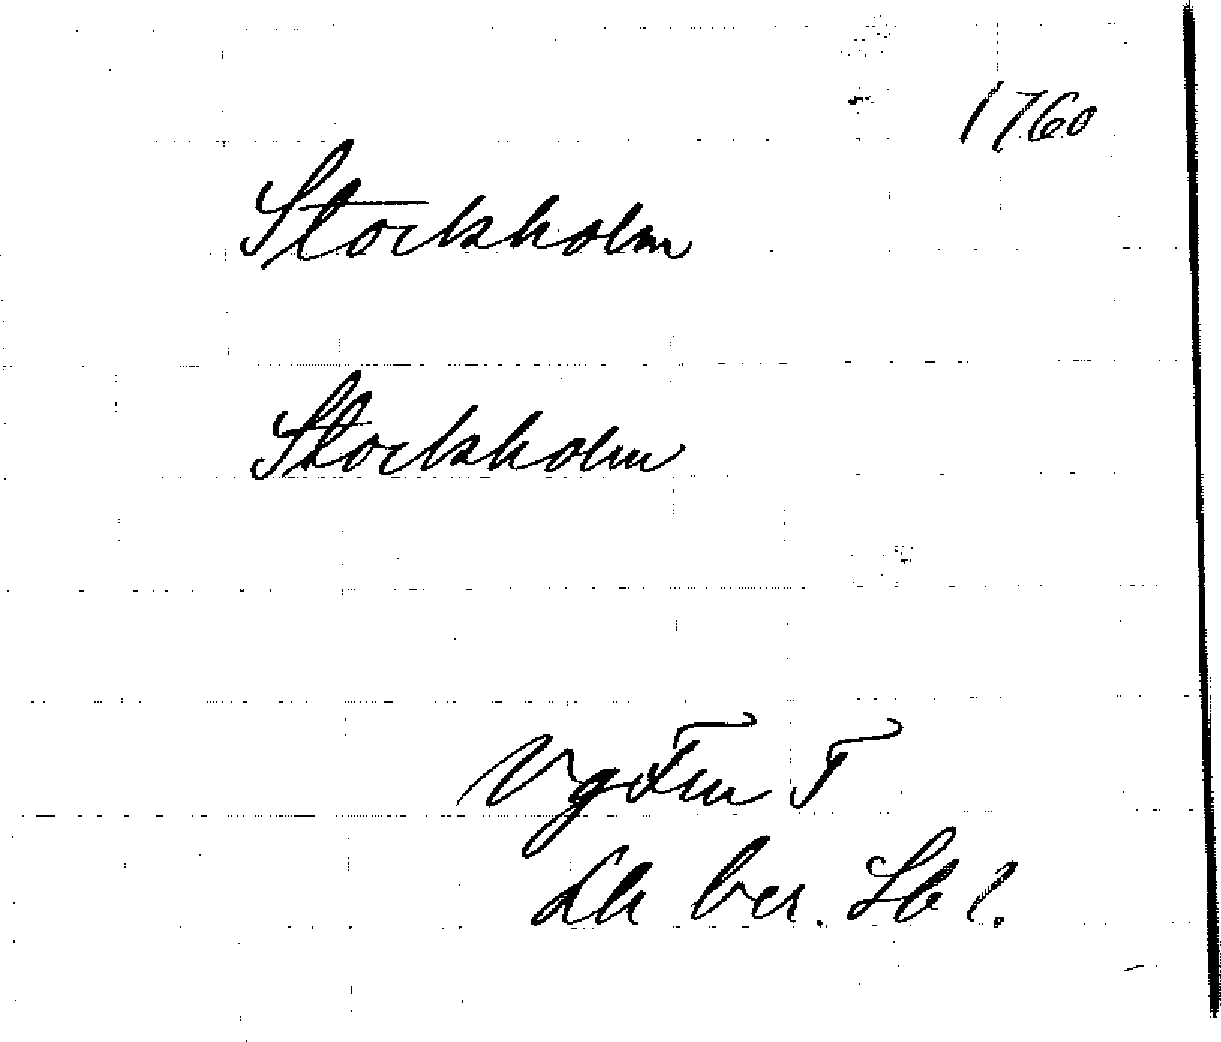 1760
Stockholm
Stockholm
VgFm T
ber. Sb 1.